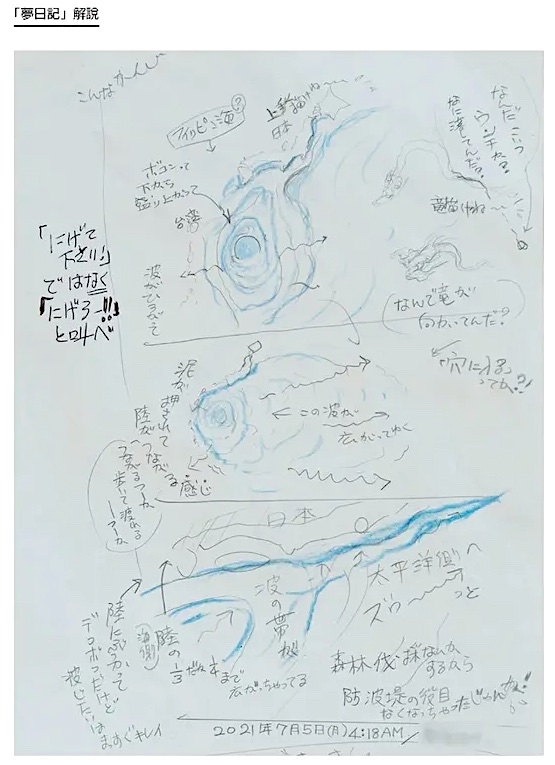 「夢日記」解說
こんなかんじ
フィリピン海?
上手描けね〜
日本
なんだこいつ
ウンチかな?
なに落てんだ?
竜描けね〜
ボコンって
下から
盛り上がって
台湾
「にげて
下さい!」
ではなく
「にげろー!!」
と叫べ
波がひろがって
なんで竜が
向かいてんだ?
「穴に入る」
ってか?!
泥が押されて
陸がつながる感じ
つながるつーか
歩いて渡れる
つーか
この波が
広がってゆく
日本
波の帯が
太平洋側へ
ズゥーーっと
陸にぶつかって
デコボコだけど
波じたいは
まっすぐキレイ
(海側)
陸の
1/3だね
まで
広がっちゃってる
森林伐採なんか
するから
防波堤の役目
なくなっちゃったじゃんか!!
2021年7月5日(月)4:18AM